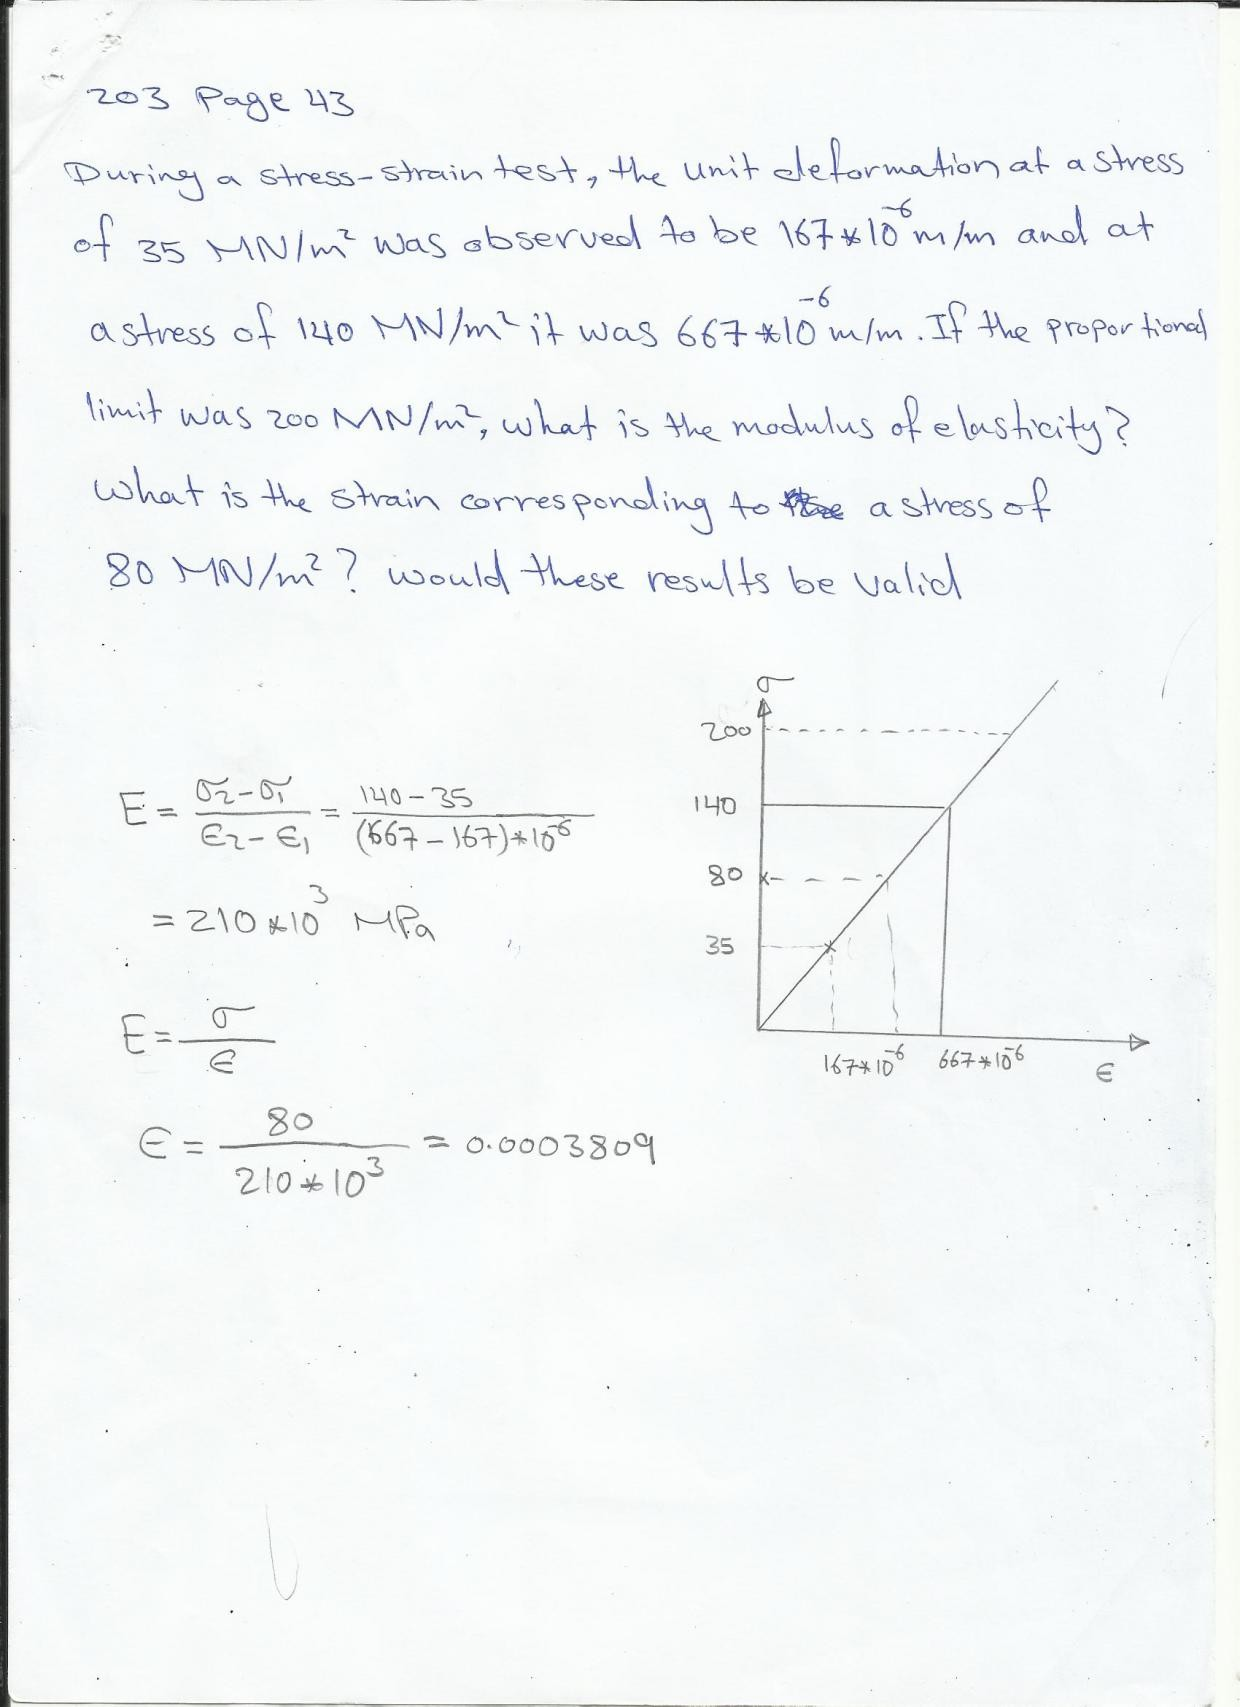 203 Page 43
During a stress-strain test, the unit deformation at a stress
of 35 MN/m² was observed to be 167*10⁻⁶ m/m and at
a stress of 140 MN/m² it was 667*10⁻⁶ m/m. If the proportional
limit was 200 MN/m², what is the modulus of elasticity?
What is the strain corresponding to a stress of
80 MN/m²? would these results be valid
E = (σ2-σ1)/(ϵ2-ϵ1) = (140-35)/((667-167)*10⁻⁶)
= 210*10³ MPa
E = σ/ϵ
ϵ = 80/(210*10³) = 0.0003809
σ
200
140
80
35
167*10⁻⁶ 667*10⁻⁶
ϵ